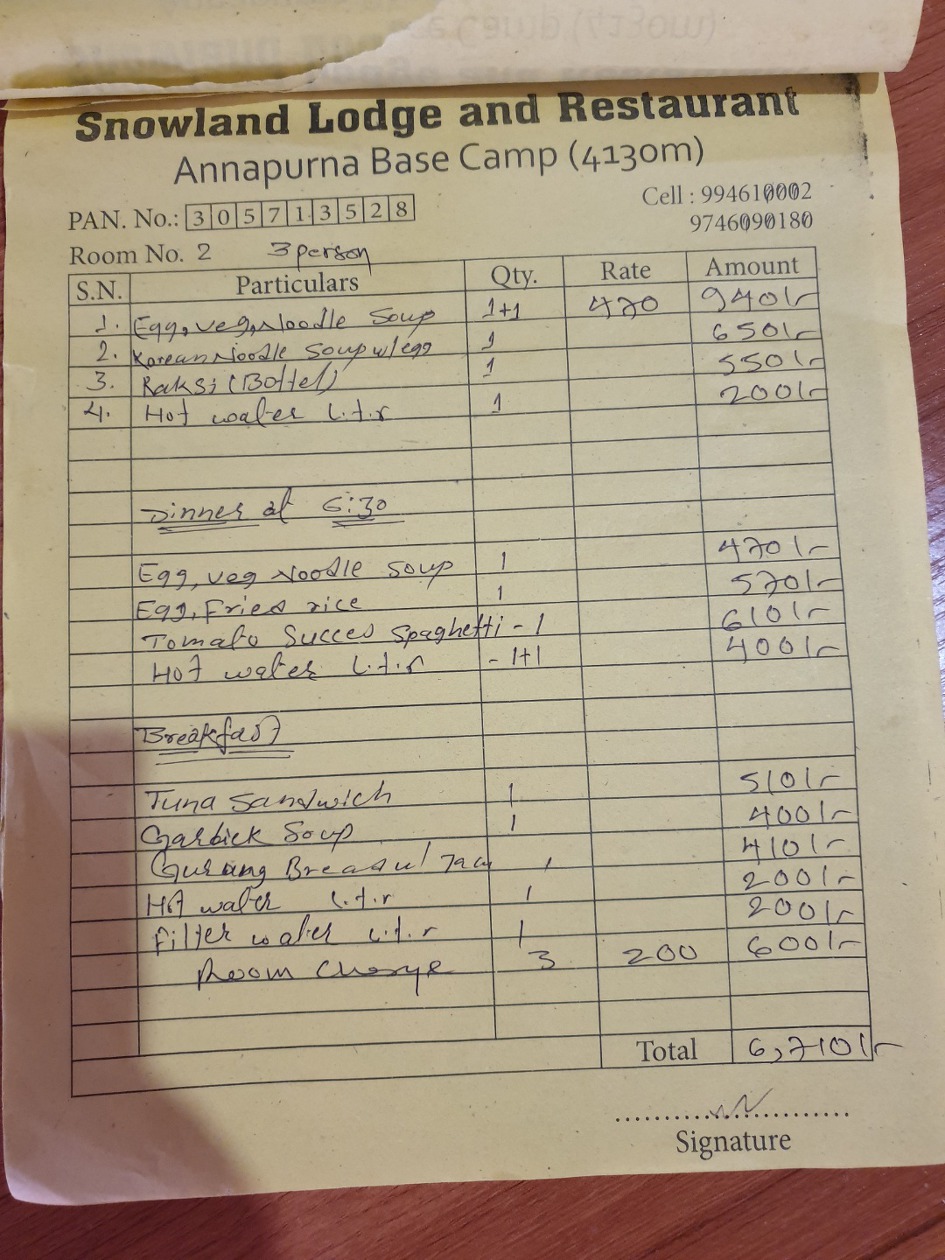 Snowland Lodge and Restaurant
Annapurna Base Camp (4130m)
Cell : 994610002
PAN. No.: 305713528
9746090180
Room No. 2 3 person
S.N. Particulars Qty. Rate Amount
1. Egg, Veg, Noodle Soup 1+1 470 940/-
2. Korean Noodle Soup w/egg 1 650/-
3. Raksi (Bottel) 1 550/-
4. Hot water L.t.r 1 200/-
Dinner at 6:30
Egg, Veg Noodle Soup 1 470/-
Egg, Fried rice 1 570/-
Tomato Succes Spaghetti - 1 610/-
Hot water L.t.r - 1+1 400/-
Breakfast
Tuna Sandwich 1 510/-
Garlick Soup 1 400/-
Gurung Bread w/ Jam 1 410/-
Hot water L.t.r 1 200/-
Filter water L.t.r 1 200/-
Room Charge 3 200 600/-
Total 6,710/-
Signature